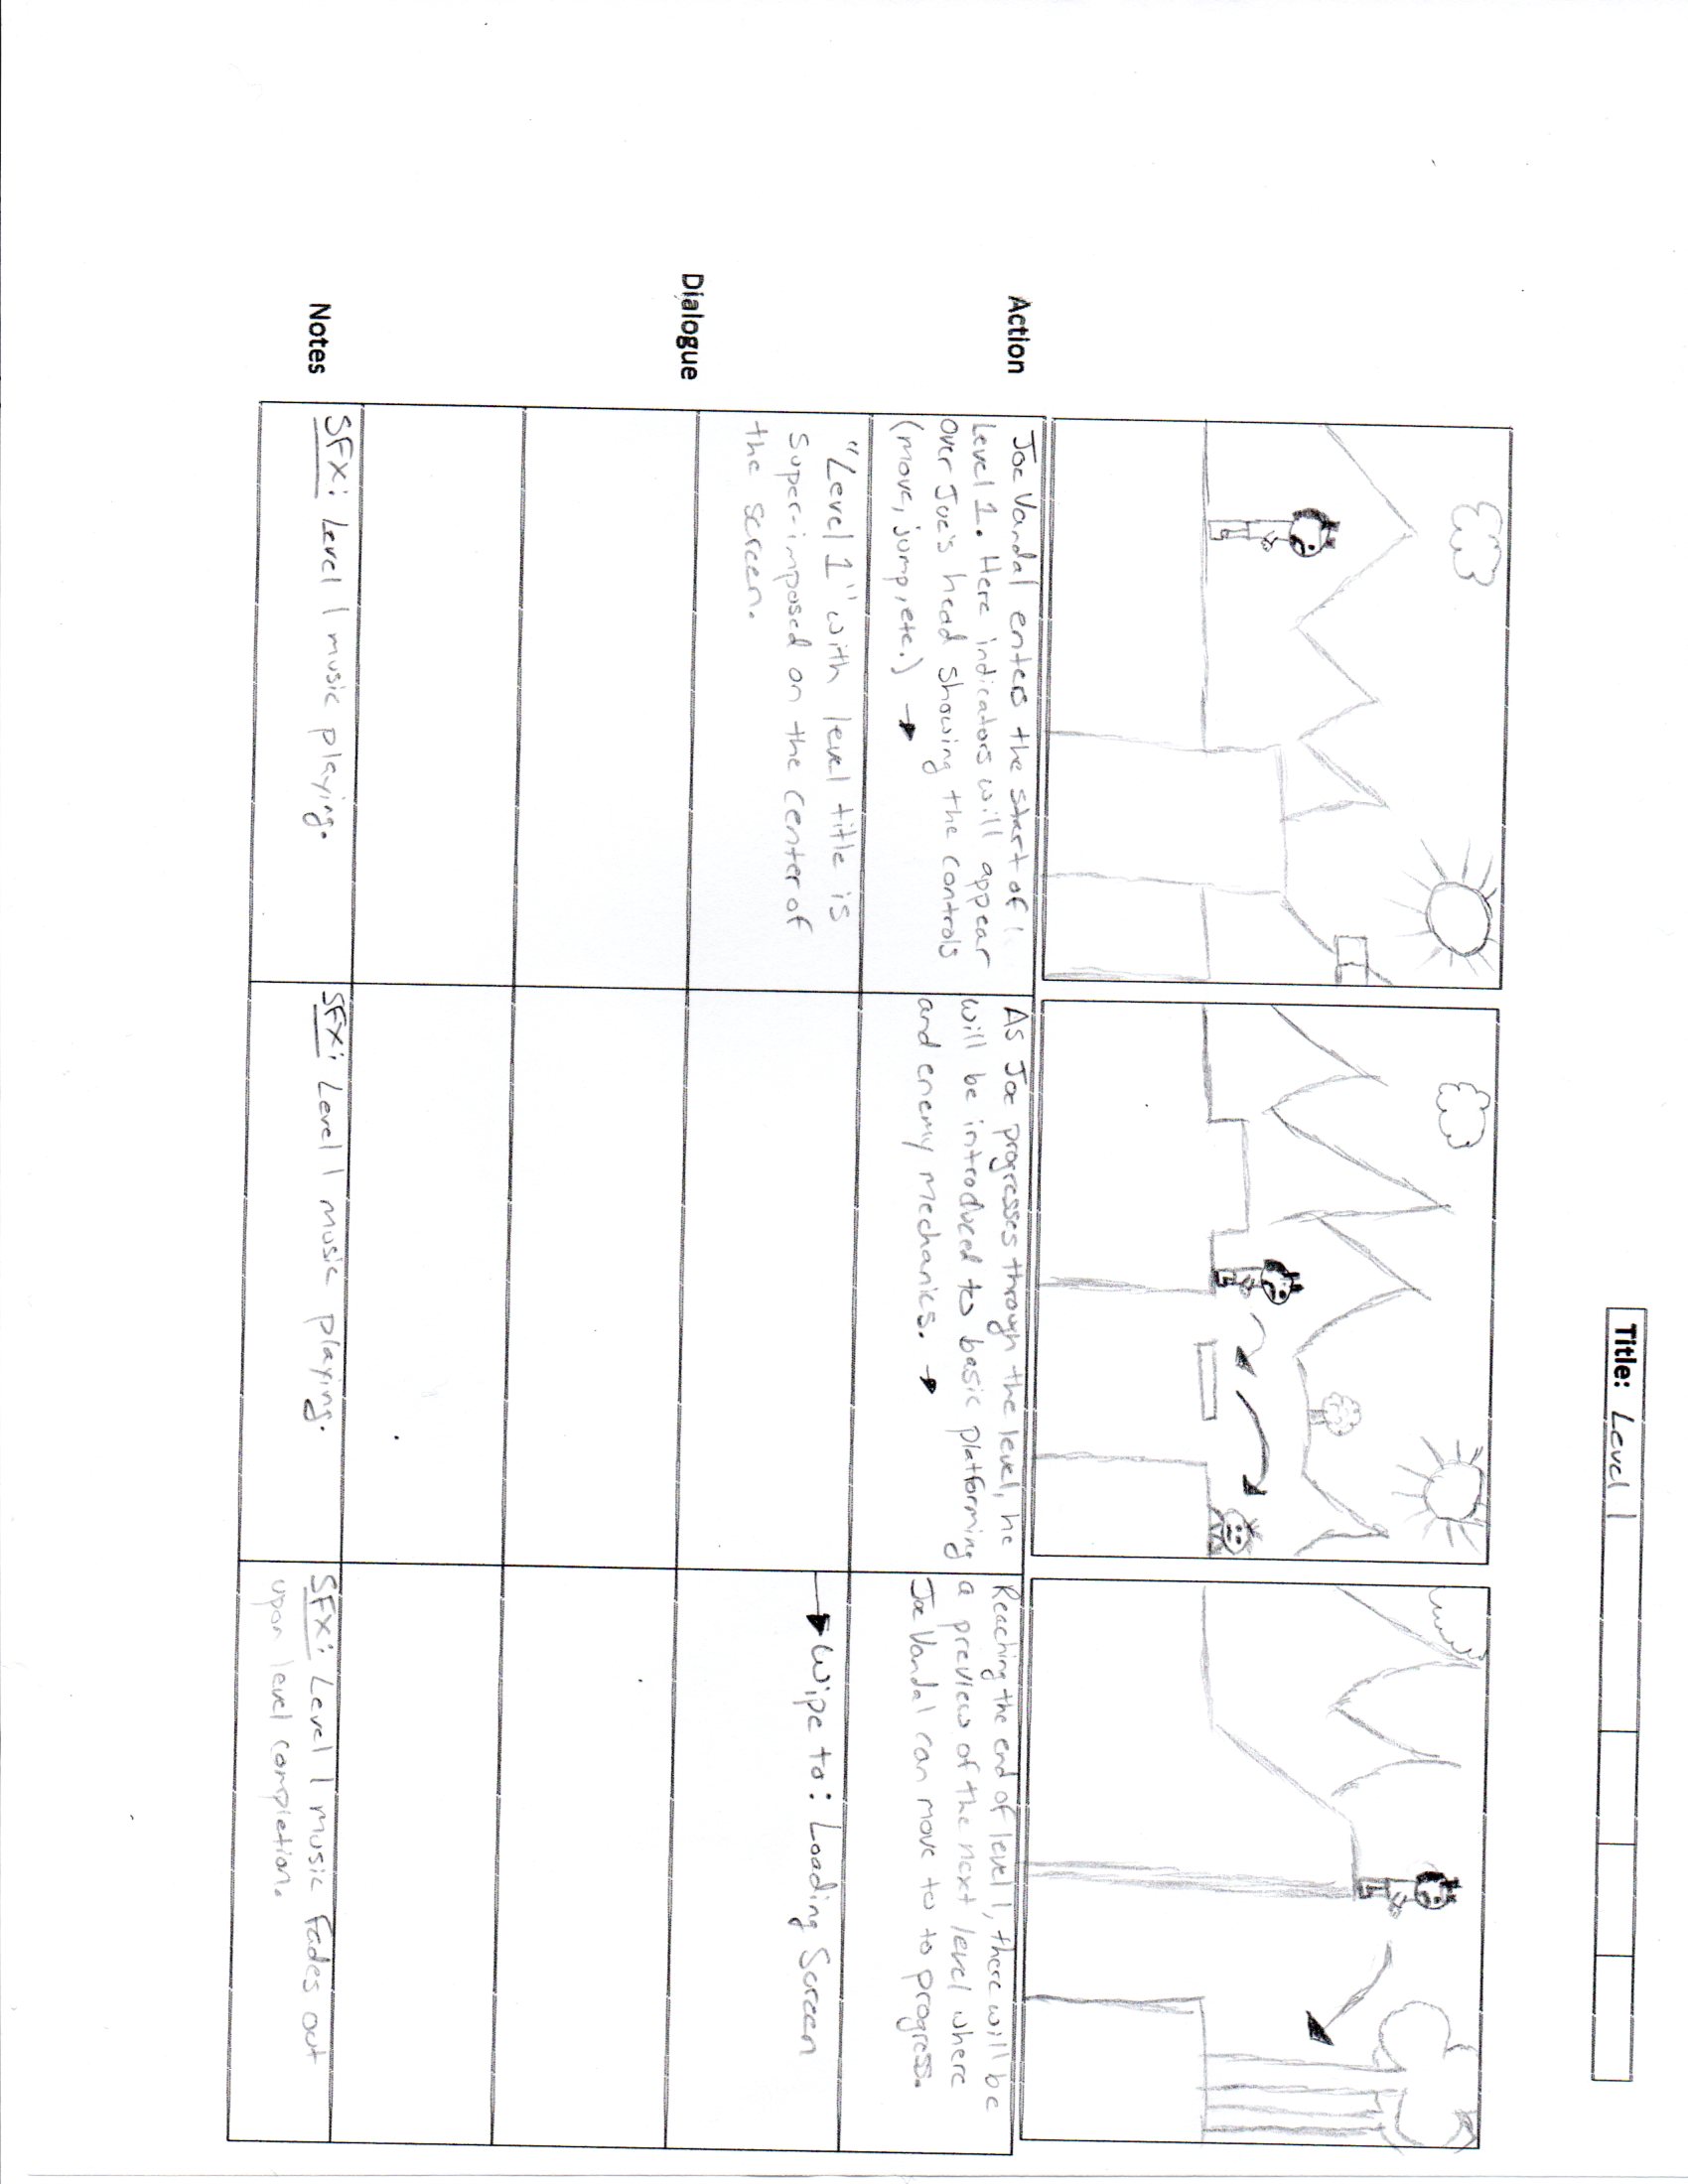 Title: Level 1
Action
Joe Vandal enters the start of
Level 1. Here indicators will appear
over Joe's head showing the controls
(move, jump, etc.) →
As Joe progresses through the level, he
will be introduced to basic platforming
and enemy mechanics. →
Reaching the end of level 1, there will be
a preview of the next level where
Joe Vandal can move to to progress.
"Level 1" with level title is
super-imposed on the center of
the screen.
→ Wipe to: Loading Screen
Dialogue
Notes
SFX: Level 1 music playing.
SFX: Level 1 music playing.
SFX: Level 1 music fades out
upon level completion.